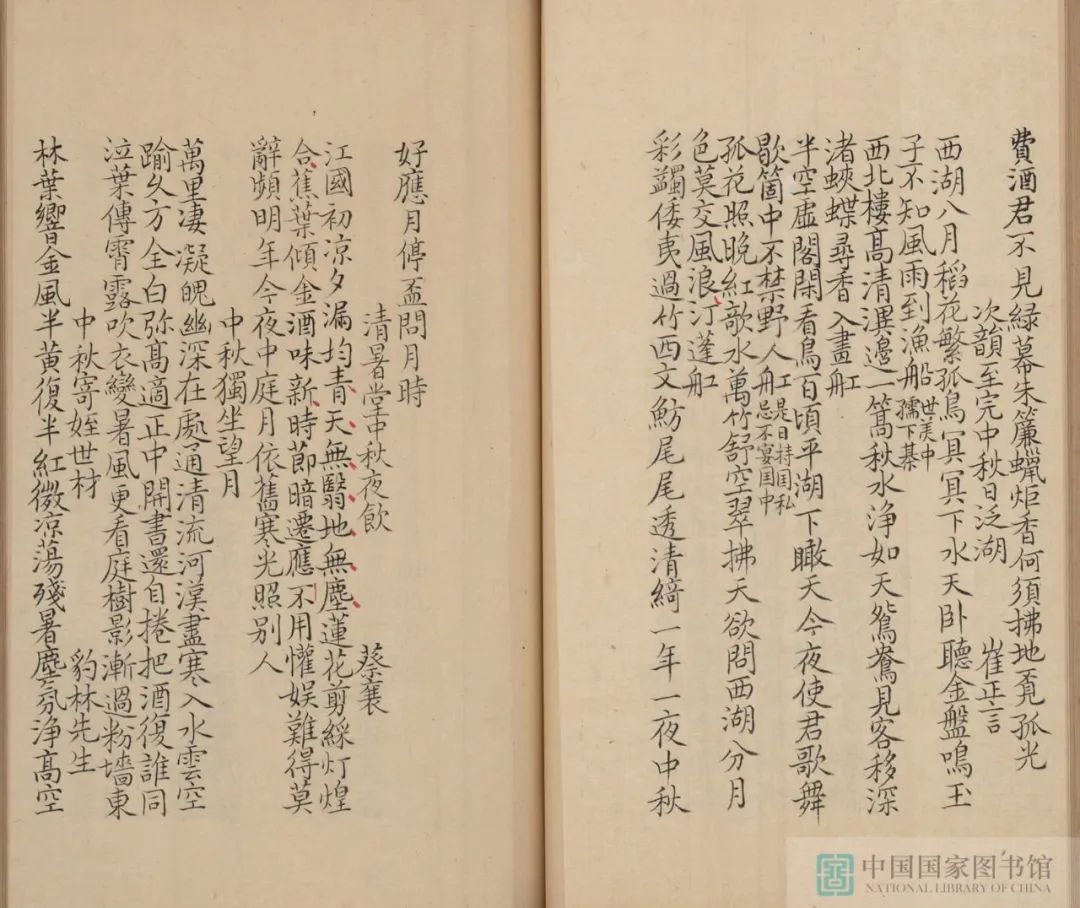 費酒君不見綠幕朱簾蠟炬香何須拂地覓孤光
次韻至完中秋日泛湖 崔正言
西湖八月稻花繁孤鳥冥冥下水天卧聽金盤鳴玉
子不知風雨到漁船世美中孺下棊
西北樓高清淏邊一篙秋水淨如天鴛鴦見客移深
渚蛺蝶尋香入畫舡
半空虛閣閑看鳥百頃平湖下瞰天今夜使君歌舞
歇箇中不禁野人舡是日持国私忌不宴国中
孤花照晚紅敧水萬竹舒空翠拂天欲問西湖分月
色莫交風浪汀蓬舡
彩蠲倭夷過竹西文魴尾尾透清綺一年一夜中秋
好應月停盃問月時
清暑堂中秋夜飲 蔡襄
江國初凉夕漏均青天無翳地無塵蓮花剪綵灯煌
合蕉葉傾金酒味新時節暗遷應不用懽娛難得莫
辭頻明年今夜中庭月依舊寒光照别人
中秋獨坐望月
萬里凄凝魄幽深在處通清流河漢盡寒入水雲空
踰久方全白弥高適正中開書還自捲把酒復誰同
泣葉傳霄露吹衣變暑風更看庭樹影漸過粉墻東
中秋寄姪世材 豹林先生
林葉響金風半黄復半紅微凉蕩殘暑塵氛淨高空
中国国家图书馆
NATIONAL LIBRARY OF CHINA